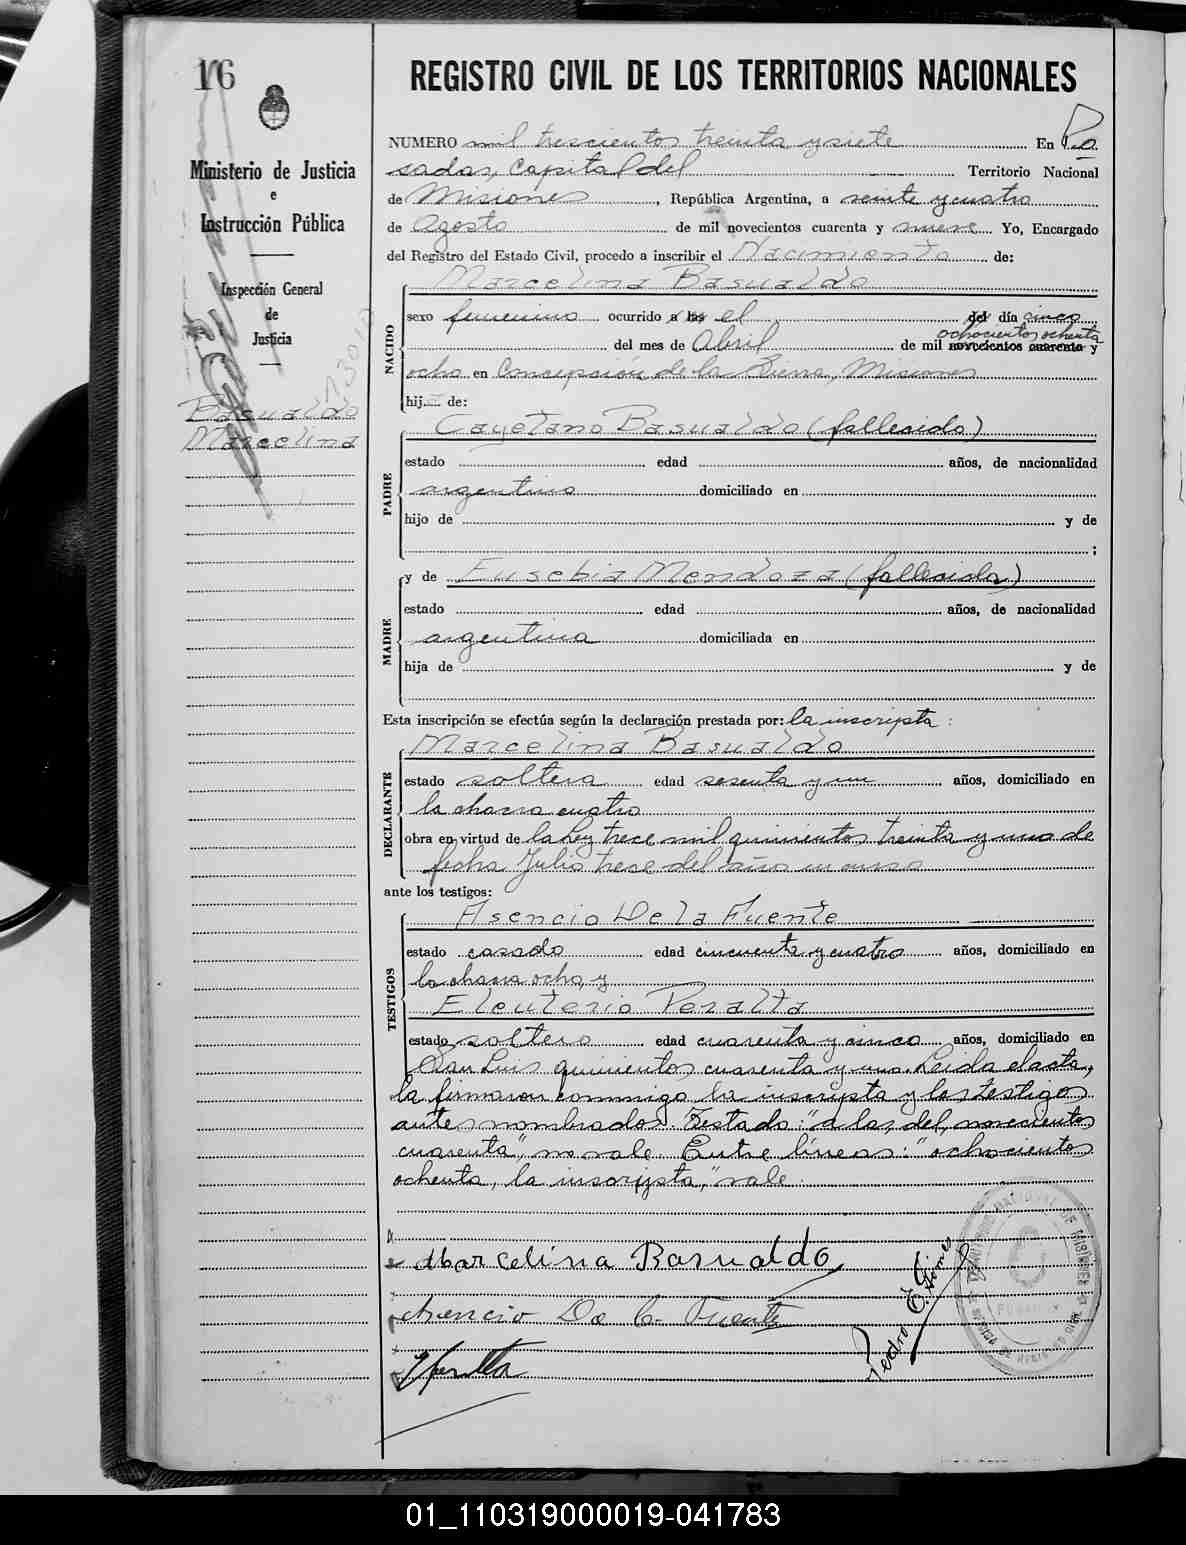 16
Ministerio de Justicia
e
Instrucción Pública
Inspección General
de
Justicia
Basualdo
Marcelina
REGISTRO CIVIL DE LOS TERRITORIOS NACIONALES
NUMERO mil trescientos treinta y siete En Po
sadas, Capital del Territorio Nacional
de Misiones, República Argentina, a veinte y cuatro
de Agosto de mil novecientos cuarenta y nueve Yo, Encargado
del Registro del Estado Civil, procedo a inscribir el Nacimiento de:
NACIDO
Marcelina Basualdo
sexo femenino ocurrido a las el del día cinco
ochocientos ochenta
del mes de Abril de mil novecientos cuarenta y
ocho en Concepción de la Sierra, Misiones
hija de:
PADRE
Cayetano Basualdo (fallecido)
estado edad años, de nacionalidad
argentino domiciliado en
hijo de y de
;
MADRE
y de Eusebia Mendoza (fallecida)
estado edad años, de nacionalidad
argentina domiciliada en
hija de y de
Esta inscripción se efectúa según la declaración prestada por: la inscripta:
DECLARANTE
Marcelina Basualdo
estado soltera edad sesenta y un años, domiciliado en
la chacra cuatro
obra en virtud de la Ley trece mil quinientos treinta y uno de
fecha Julio trece del año en curso
ante los testigos:
TESTIGOS
Asencio De la Fuente
estado casado edad cincuenta y cuatro años, domiciliado en
la chacra ocho, y
Eleuterio Peralta
estado soltero edad cuarenta y cinco años, domiciliado en
San Luis quinientos cuarenta y uno. Leida el acta,
la firmaron conmigo la inscripta y los testigos
antes nombrados. Testado: "a las, del, novecientos
cuarenta", no vale. Entre líneas: "ochocientos
ochenta, la inscripta," vale.
Marcelina Basualdo
Asencio De la Fuente
Pedro E. Gómez
01_110319000019-041783